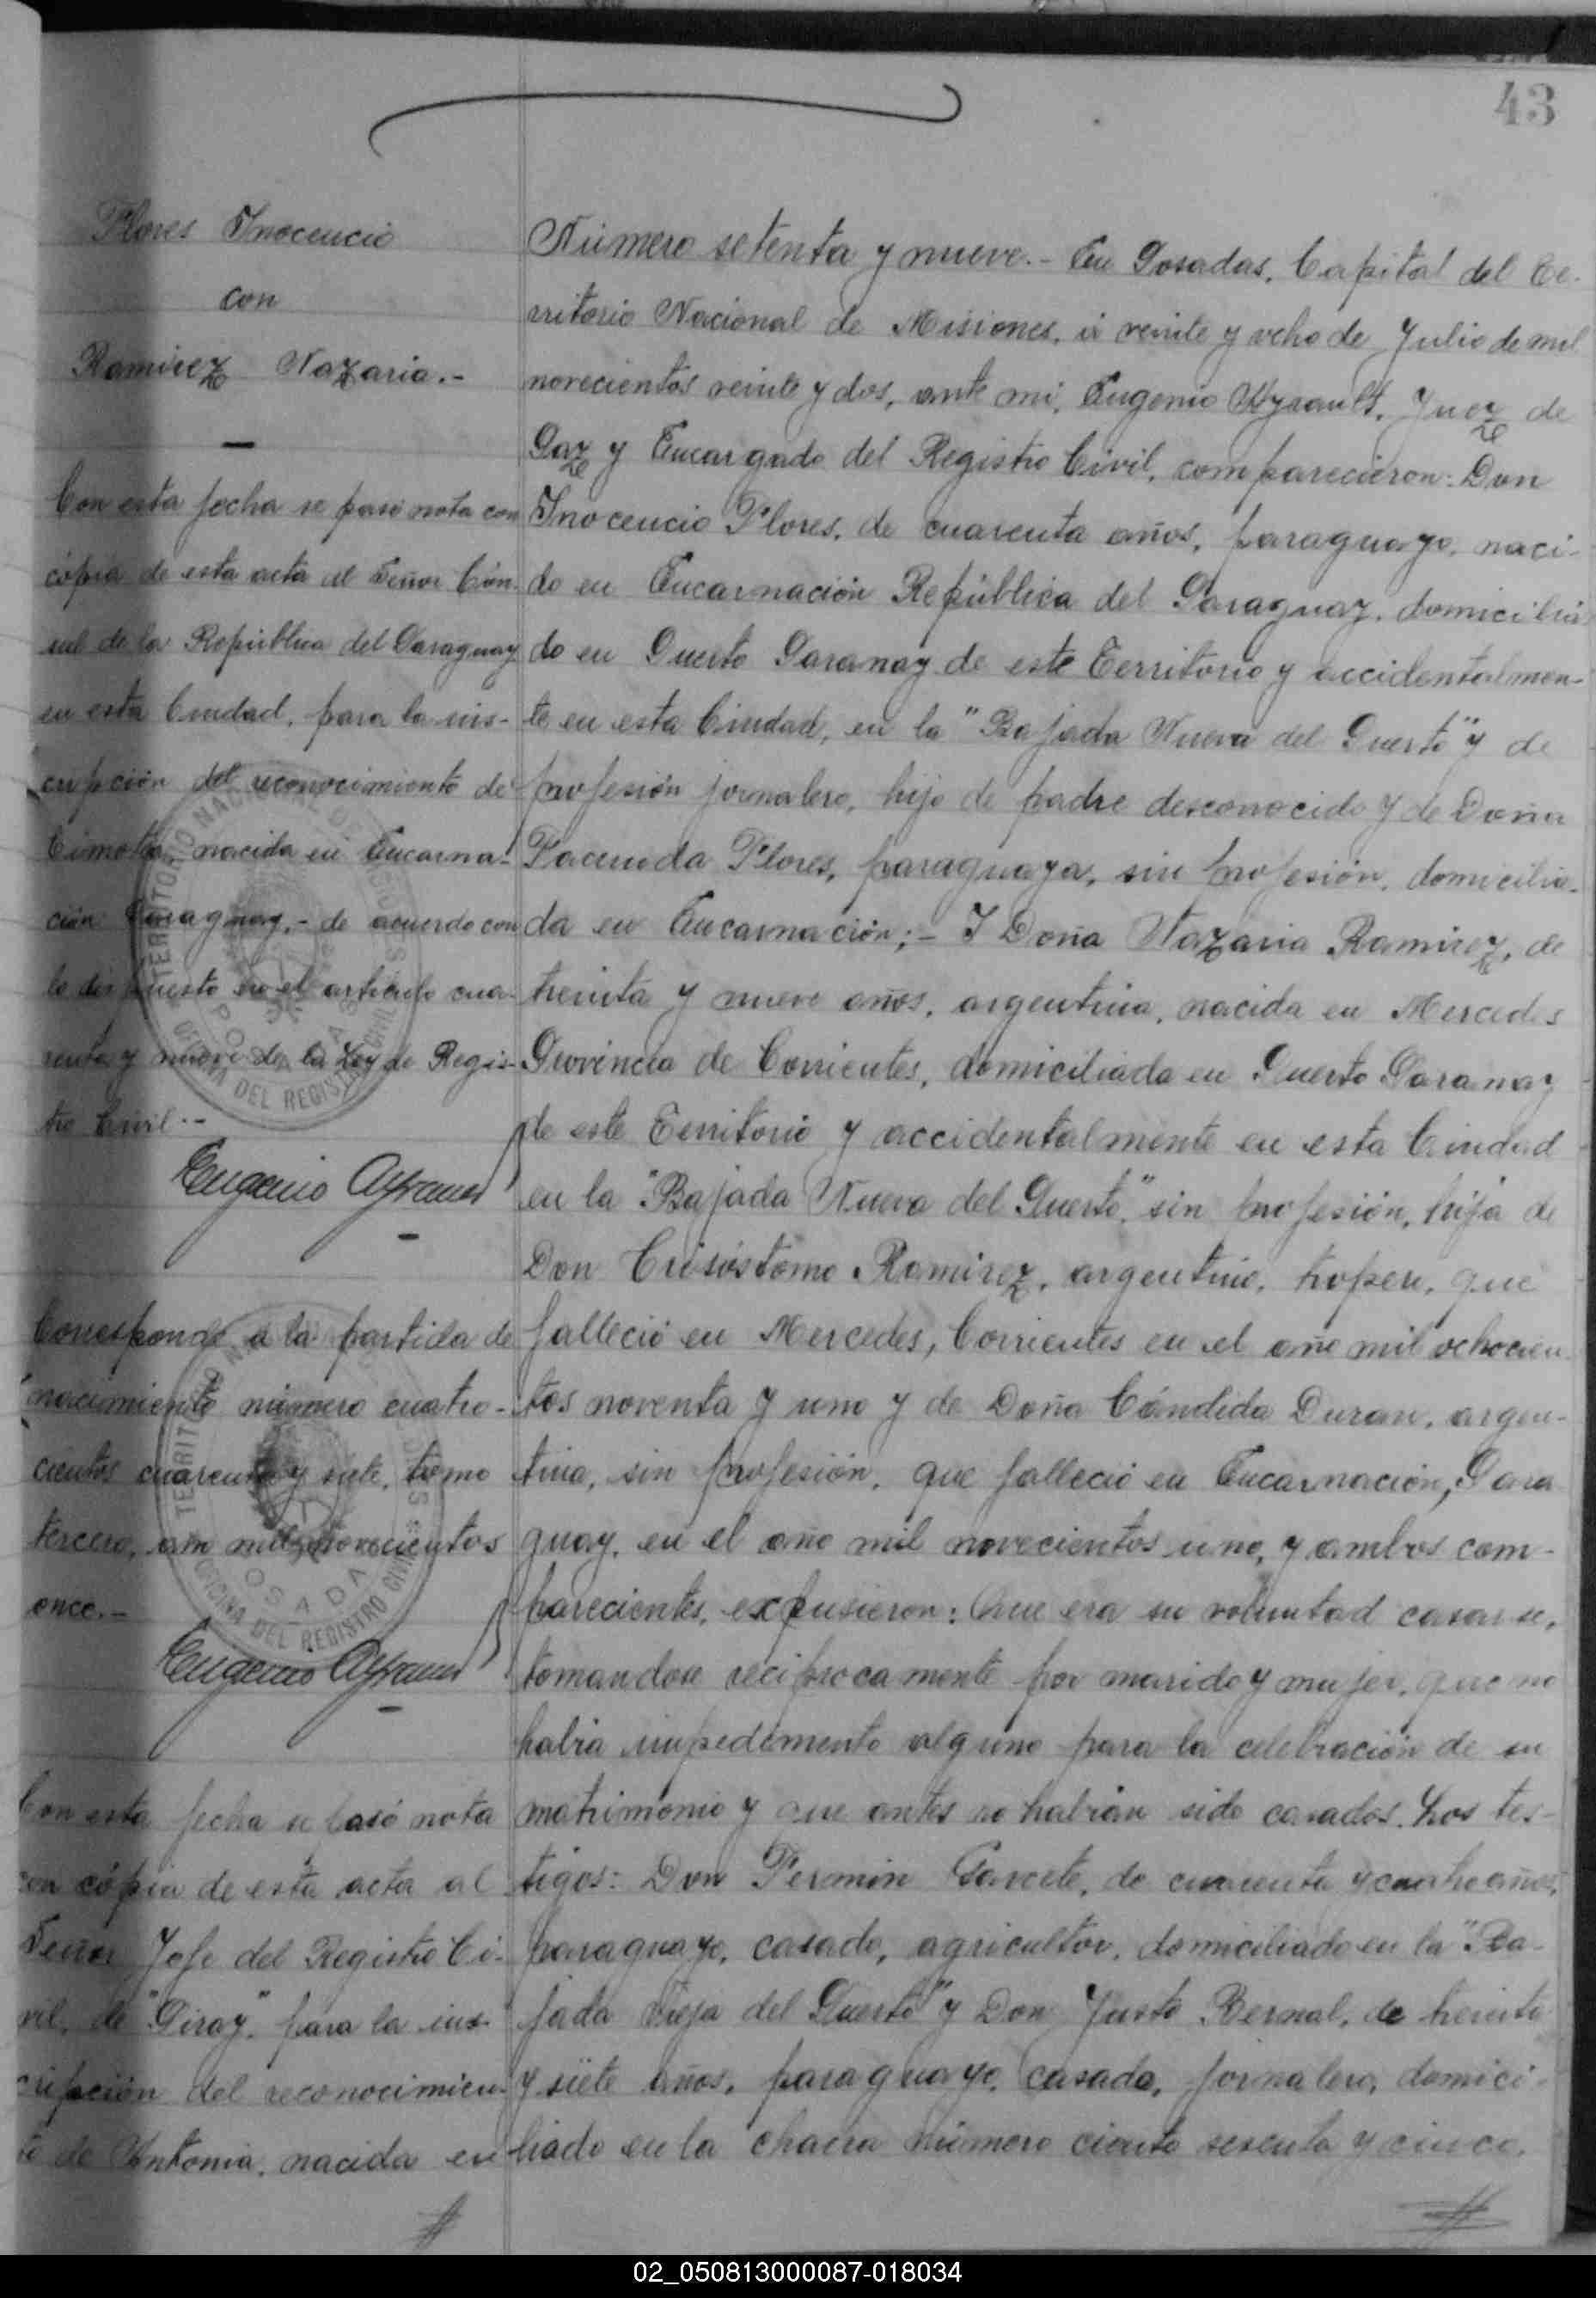 43
Flores Inocencio
con
Ramirez Nazaria.-
Con esta fecha se pasó nota con
cópia de esta acta al Señor Cón-
sul de la República del Paraguay
en esta Ciudad, para la ins-
cripción del reconocimiento de
Timotea, nacida en Encarna-
ción Paraguay,- de acuerdo con
lo dispuesto en el artículo cua-
renta y nueve de la Ley de Regis-
tro Civil.-
Eugenio
Corresponde a la partida de
nacimiento número cuatro-
cientos cuarenta y siete, tomo
tercero, año mil novecientos
once.-
Eugenio
Con esta fecha se pasó nota
con cópia de esta acta al
Señor Jefe del Registro Ci-
vil, de "Piray", para la ins-
cripción del reconocimien-
to de Antonia, nacida en
Número setenta y nueve.- En Posadas, Capital del Te-
rritorio Nacional de Misiones, á veinte y ocho de Julio de mil
novecientos veinte y dos, ante mi, Eugenio Ayrault, Juez de
Paz y Encargado del Registro Civil, comparecieron: Don
Inocencio Flores, de cuarenta años, paraguayo, naci-
do en Encarnación República del Paraguay, domicilia
do en Puerto Paranay de este Territorio y accidentalmen-
te en esta Ciudad, en la "Bajada Nueva del Puerto" y de
profesión jornalero, hijo de padre desconocido y de Doña
Facunda Flores, paraguaya, sin profesión, domicilia-
da en Encarnación;- I Doña Nazaria Ramirez, de
treinta y nueve años, argentina, nacida en Mercedes
Provincia de Corrientes, domiciliada en Puerto Paranay
de este Territorio y accidentalmente en esta Ciudad
en la "Bajada Nueva del Puerto," sin profesión, hija de
Don Crisóstomo Ramirez, argentino, tropero, que
falleció en Mercedes, Corrientes en el año mil ochocien-
tos noventa y uno y de Doña Cándida Duran, argen-
tina, sin profesión, que falleció en Encarnación, Para
guay, en el año mil novecientos uno, y ambos com-
parecientes, expusieron: Que era su voluntad casarse,
tomandose reciprocamente por marido y mujer, que no
habia impedimento alguno para la celebración de su
matrimonio y que antes no habian sido casados. Los tes-
tigos: Don Fermin Garcete, de cuarenta y cuatro años,
paraguayo, casado, agricultor, domiciliado en la "Ba-
jada Vieja del Puerto" y Don Justo Bernal, de treinta
y siete años, paraguayo, casado, jornalero, domici-
liado en la chacra número ciento sesenta y cinco.
TERRITORIO NACIONAL DE MISIONES
POSADAS
OFICINA DEL REGISTRO CIVIL
TERRITORIO NACIONAL DE MISIONES
POSADAS
OFICINA DEL REGISTRO CIVIL
02_050813000087-018034